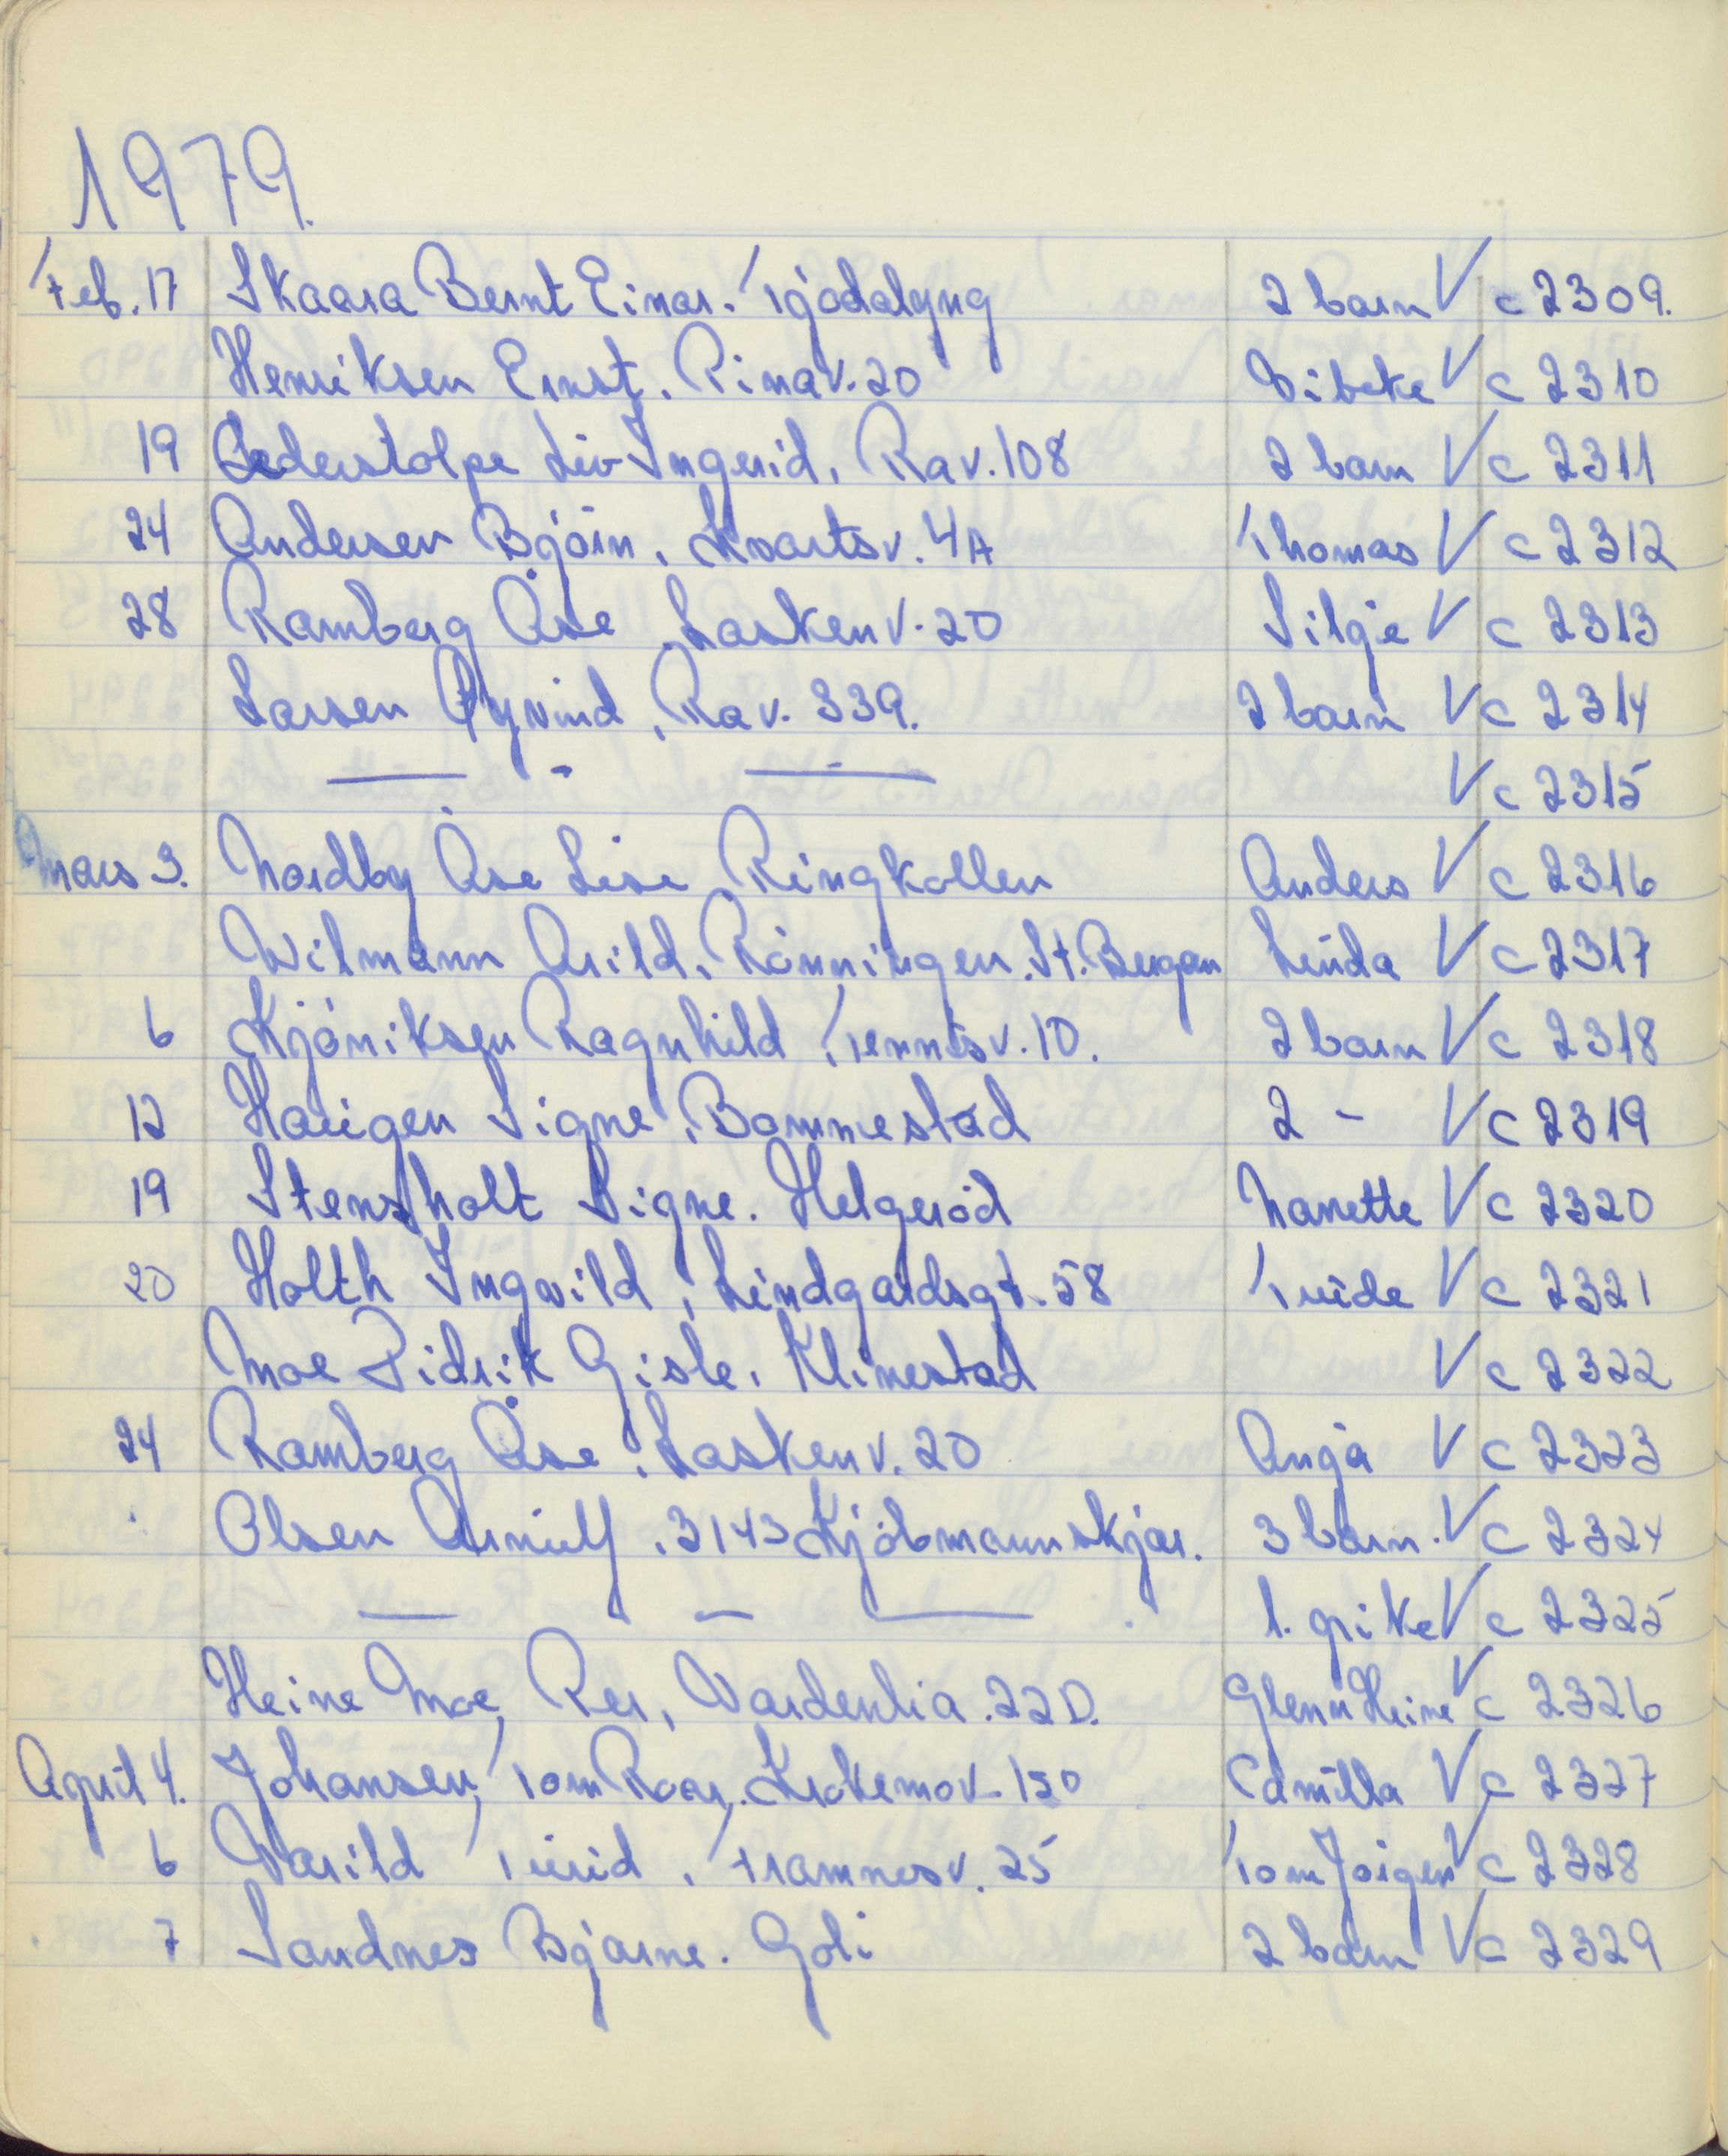 1979.
Feb. 17 Skaara Bernt Einar. Tjodalyng 2 barn V c 2309.
Henriksen Ernst. Rimav. 20 Vibeke V c 2310
19 Cederstolpe Liv Ingerid, Rav. 108 2 barn V c 2311
24 Andersen Bjørn, Kvartsv. 4A Thomas V c 2312
28 Ramberg Åse, Laskenv. 20 Silje V c 2313
Larsen Øyvind, Rav. 339. 2 barn V c 2314
— - — V c 2315
Mars 3. Nordby Åse Lise Ringkollen Anders V c 2316
Wilmann Arild, Rønningen. St. Bergan Linda V c 2317
6 Kjøniksen Ragnhild, Tennisv. 10. 2 barn V c 2318
12 Haugen Signe, Bommestad 2 - V c 2319
19 Stensholt Signe. Helgerød Nanette V c 2320
20 Holth Ingvild, Lindgaardsgt. 58 Trude V c 2321
Moe Didrik Gisle, Klinestad V c 2322
24 Ramberg Åse, Laskenv. 20 Anja V c 2323
Olsen Arnulf, 3143 Kjøbmannskjær. 3 barn. V c 2324
— - — 1. pike V c 2325
Heine Moe, Per, Vardenlia. 22D. Glenn Heine V c 2326
April 4. Johansen, Tom Roar, Krokemov. 150 Camilla V c 2327
6 Varild Turid, Framnesv. 25 Tom Jørgen V c 2328
7 Sandnes Bjarne. Goli 2 barn V c 2329